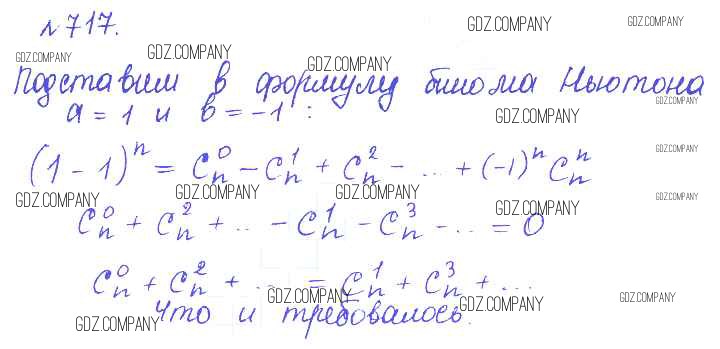 №717.
GDZ.COMPANY GDZ.COMPANY
GDZ.COMPANY GDZ.COMPANY GDZ.COMPANY
Подставим в формулу бинома Ньютона
GDZ.COMPANY
a = 1 и b = -1 :
GDZ.COMPANY
GDZ.COMPANY
(1 - 1)^n = C_n^0 - C_n^1 + C_n^2 - ... + (-1)^n C_n^n
GDZ.COMPANY GDZ.COMPANY GDZ.COMPANY GDZ.COMPANY GDZ.COMPANY
C_n^0 + C_n^2 + ... - C_n^1 - C_n^3 - ... = 0
C_n^0 + C_n^2 + ... = C_n^1 + C_n^3 + ...
GDZ.COMPANY GDZ.COMPANY GDZ.COMPANY
Что и требовалось.
GDZ.COMPANY